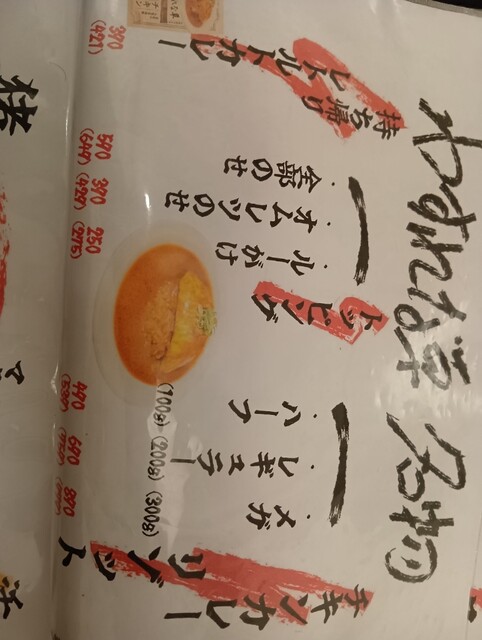 わすれな草 名物
チキンカレー
リゾット
・メガ (300g) 870
・レギュラー (200g) 690
・ハーフ (100g) 490 (539)
トッピング
・ルーがけ 250 (275)
・オムレツのせ 390 (429)
・全部のせ 590 (649)
持ち帰り
レトルトカレー
390 (421)